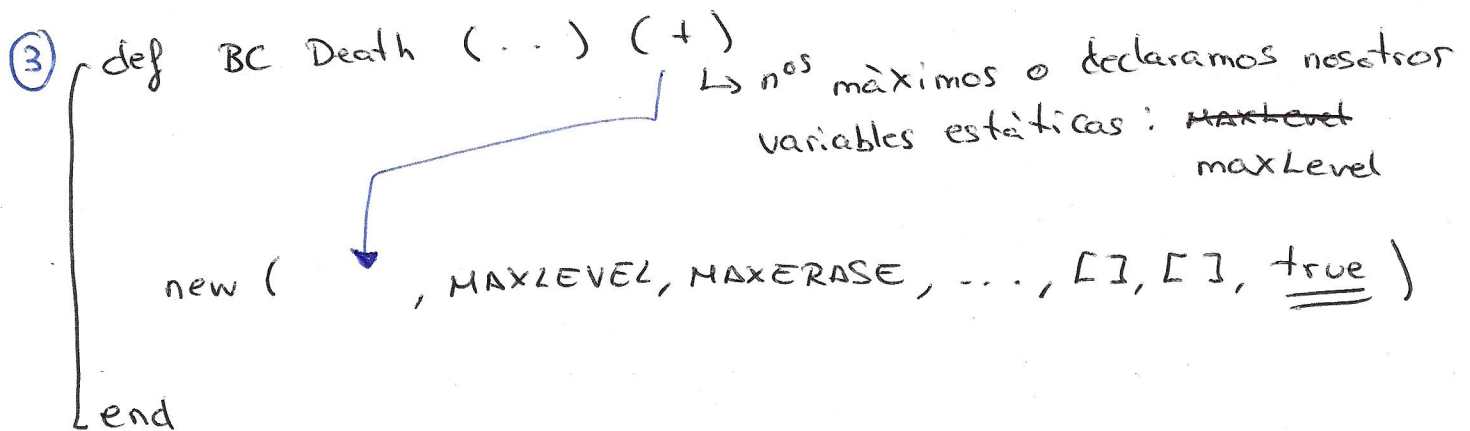 ③ def BC Death (...) (+)
↳ nos màximos o declaramos nosotros
variables estàticas : MAXLevel
maxLevel
new ( , MAXLEVEL, MAXERASE, ..., [], [], true )
end